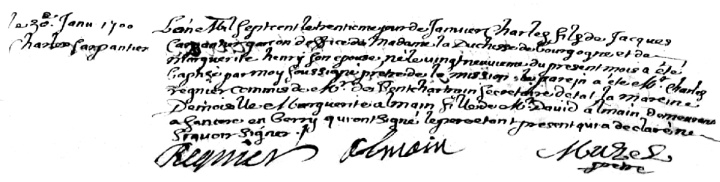 le 30e Janu 1700
Charles Carpantier
L'an Mil Sept cent le trentieme jour de Janvier Charles fils de Jacques
Carpantier garcon d'office de Madame la Duchesse de bourgogne et de
Marguerite henry son epouse, né le vingt neuvieme du present mois a été
baptisé par moy soussigné pretre de la mission le parein a été Mr Charles
regnier commis de Mr de Pontchartrain Secretaire detat la mareine
Demoiselle Marguerite almain fille de Mr David almain, demeurant
a Sancere en berry qui ont signé le pere etant present qui a declaré ne
signer
Regnier Almain Mazel
pretre